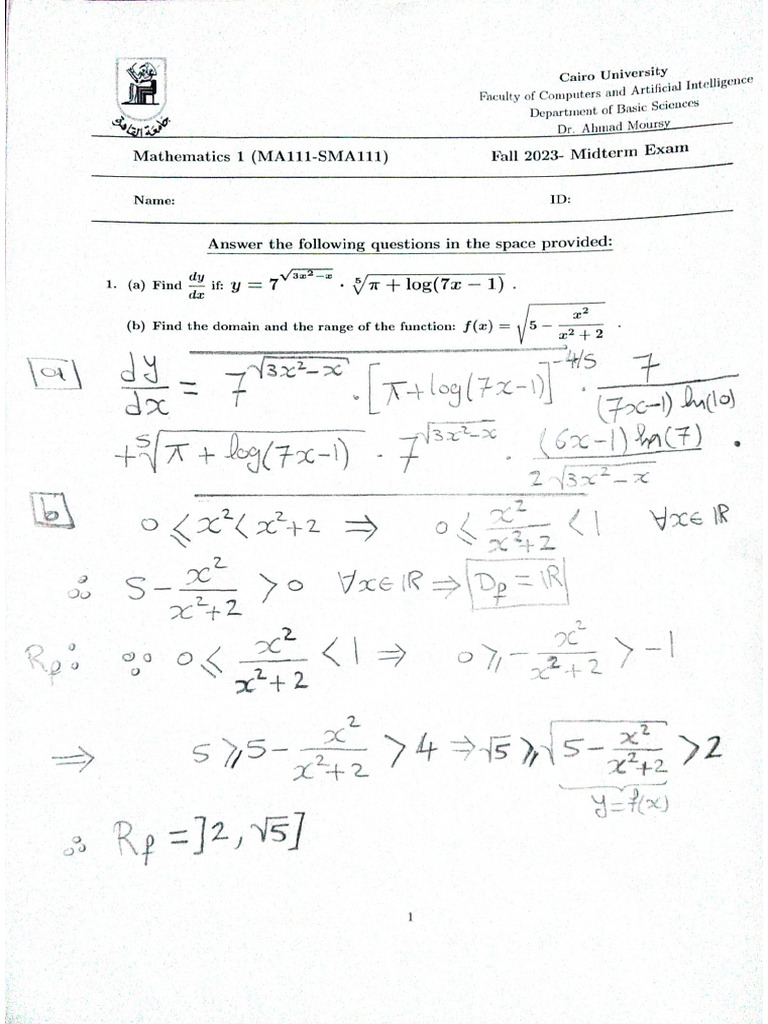 جامعة القاهرة
Cairo University
Faculty of Computers and Artificial Intelligence
Department of Basic Sciences
Dr. Ahmad Moursy
Mathematics 1 (MA111-SMA111) Fall 2023- Midterm Exam
Name: ID:
Answer the following questions in the space provided:
1. (a) Find dy/dx if: y = 7^√(3x²−x) · ⁵√(π + log(7x − 1)) .
(b) Find the domain and the range of the function: f(x) = √(5 − x²/(x² + 2)) .
a dy/dx = 7^√(3x²−x) · [π+log(7x−1)]^(−4/5) · 7/((7x−1) ln(10))
+ ⁵√(π + log(7x−1)) · 7^√(3x²−x) · (6x−1) ln(7)/(2√(3x²−x)) .
b 0 ⩽ x² < x²+2 ⇒ 0 ⩽ x²/(x²+2) < 1 ∀x∈ℝ
∴ 5 − x²/(x²+2) > 0 ∀x∈ℝ ⇒ D_f = ℝ
R_f: ∵ 0 ⩽ x²/(x²+2) < 1 ⇒ 0 ⩾ −x²/(x²+2) > −1
⇒ 5 ⩾ 5 − x²/(x²+2) > 4 ⇒ √5 ⩾ √(5 − x²/(x²+2)) > 2
y=f(x)
∴ R_f = ]2, √5]
1